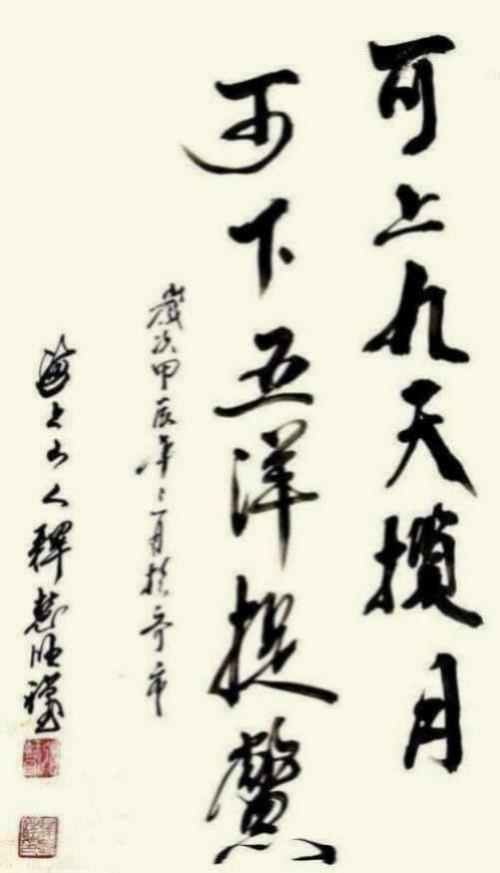 可上九天揽月
可下五洋捉鳖
岁次甲辰年二月於齐市
海上山人释慧